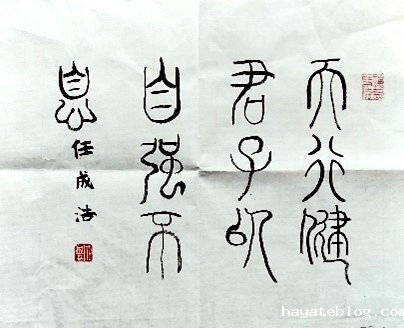 天行健
君子以
自强不
息
任成浩
hayateblog.com